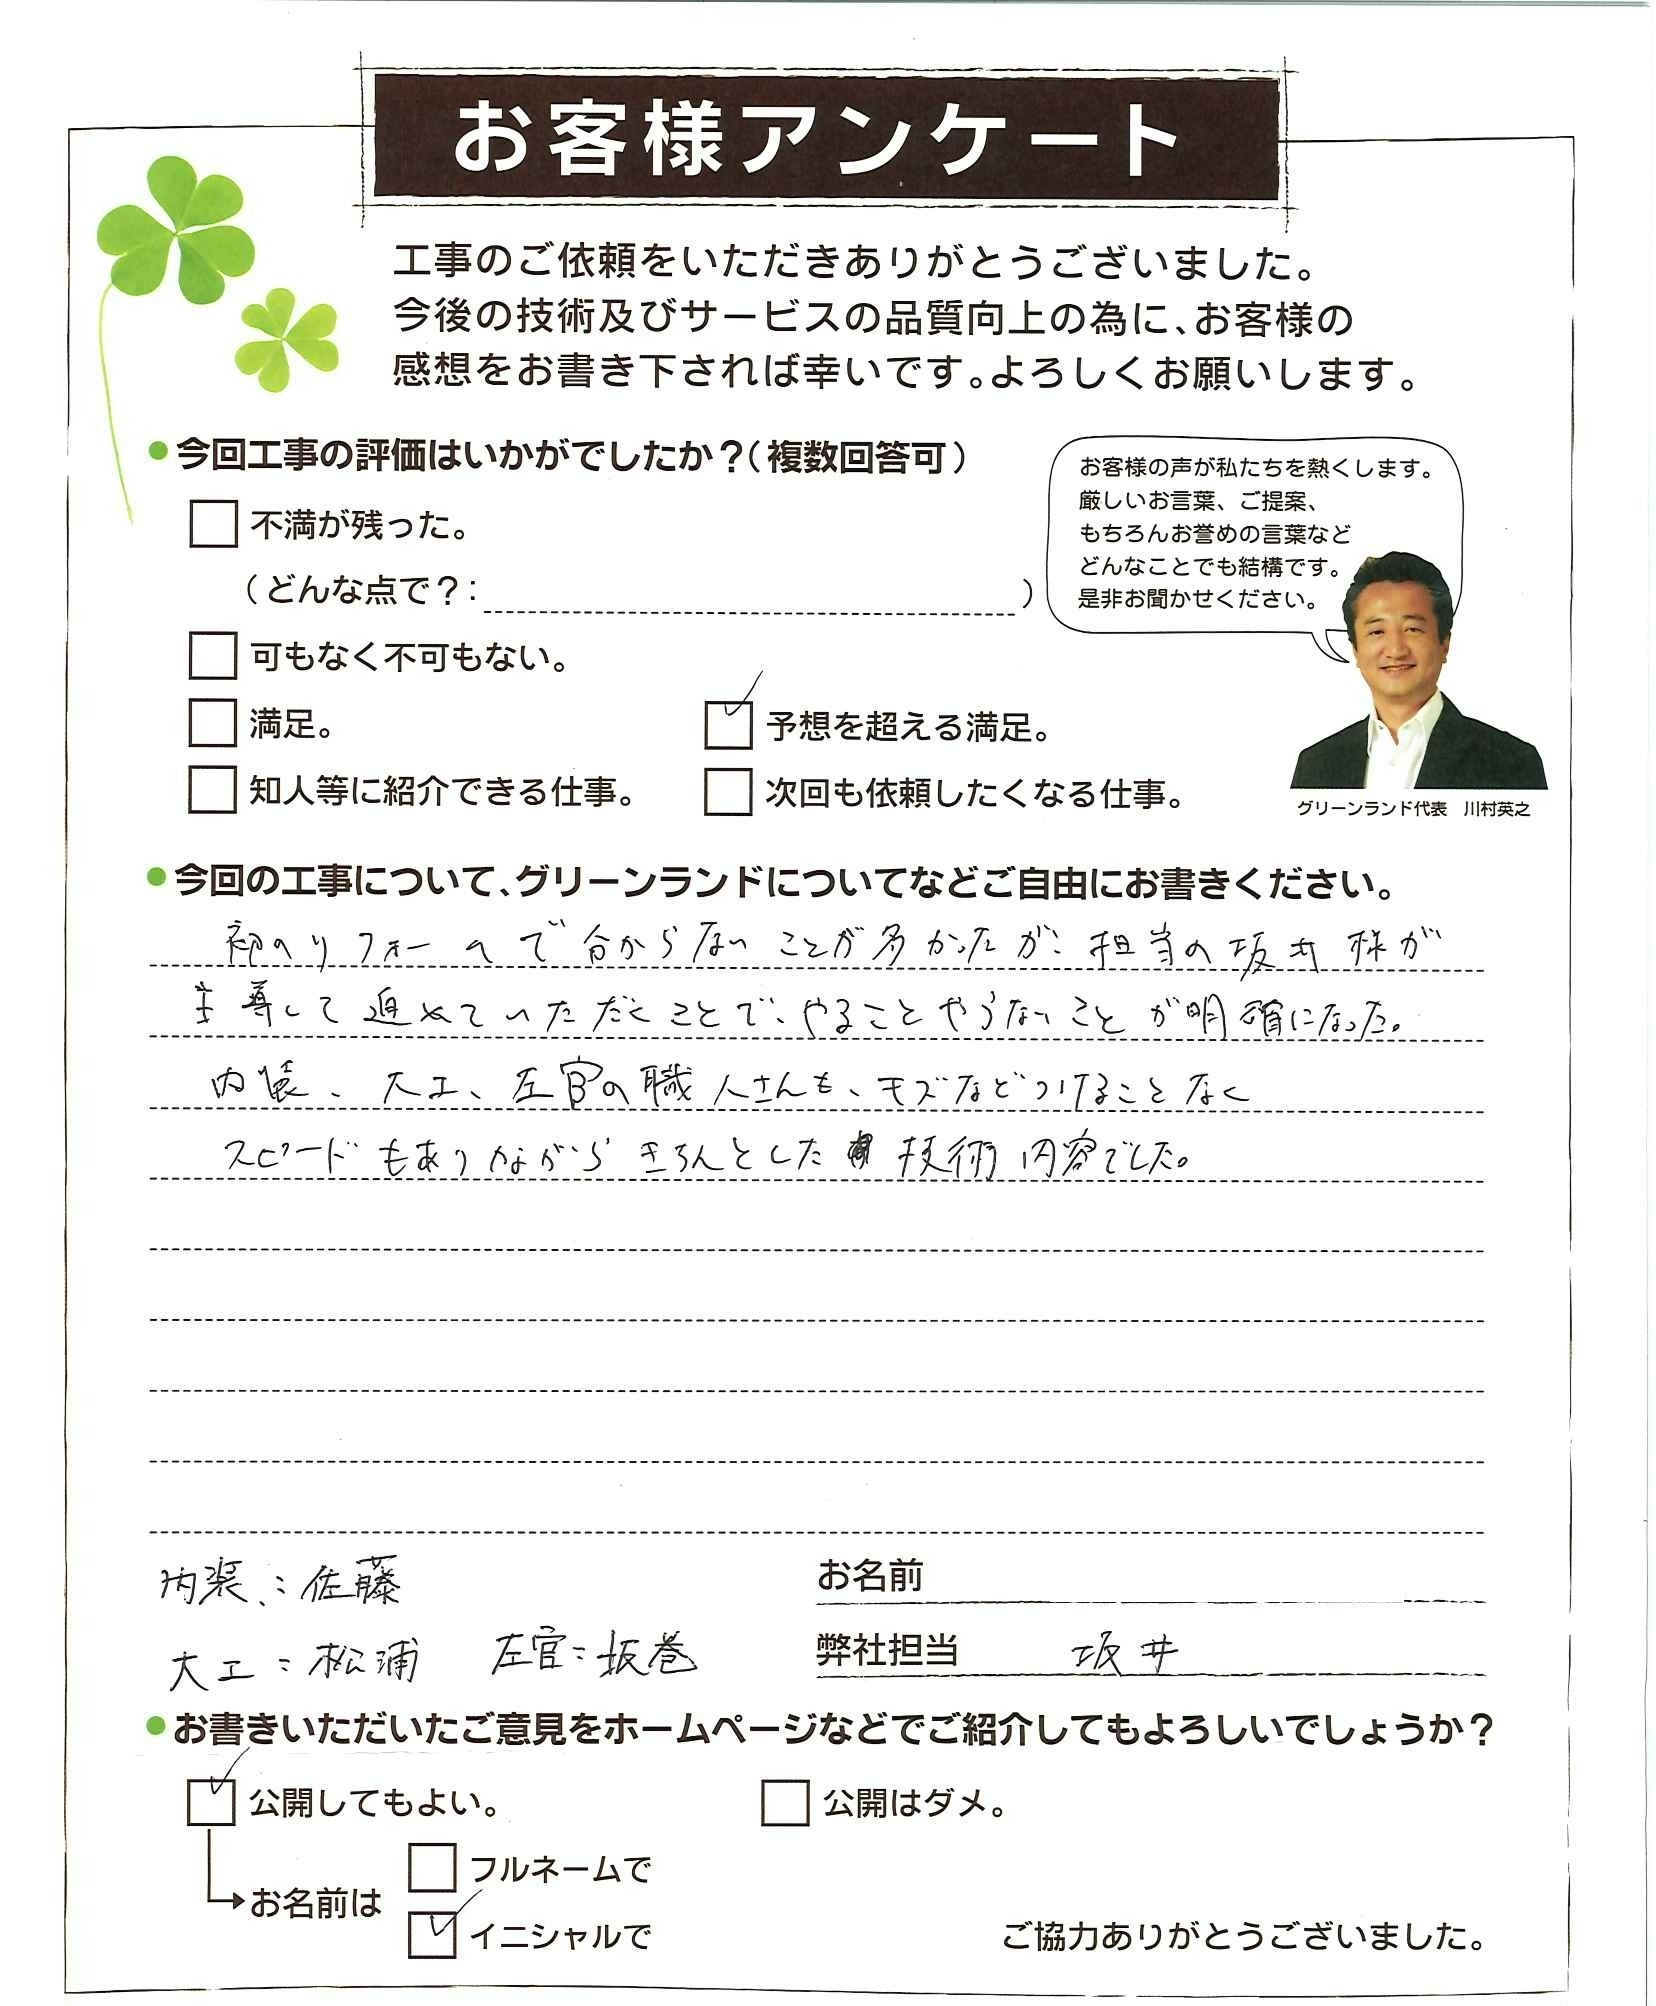 お客様アンケート
工事のご依頼をいただきありがとうございました。
今後の技術及びサービスの品質向上の為に、お客様の
感想をお書き下されば幸いです。よろしくお願いします。
●今回工事の評価はいかがでしたか？（複数回答可）
不満が残った。
（どんな点で？： ）
可もなく不可もない。
満足。
予想を超える満足。
知人等に紹介できる仕事。
次回も依頼したくなる仕事。
お客様の声が私たちを熱くします。
厳しいお言葉、ご提案、
もちろんお誉めの言葉など
どんなことでも結構です。
是非お聞かせください。
グリーンランド代表　川村英之
●今回の工事について、グリーンランドについてなどご自由にお書きください。
初のリフォームで分からないことが多かったが、担当の坂井様が
主導して進めていただくことで、やることやらないことが明確になった。
内装、大工、左官の職人さんも、キズなどつけることなく
スピードもありながらきちんとした技術内容でした。
内装：佐藤
大工：松浦　左官：坂巻
お名前
弊社担当　坂井
●お書きいただいたご意見をホームページなどでご紹介してもよろしいでしょうか？
公開してもよい。
公開はダメ。
お名前は
フルネームで
イニシャルで
ご協力ありがとうございました。